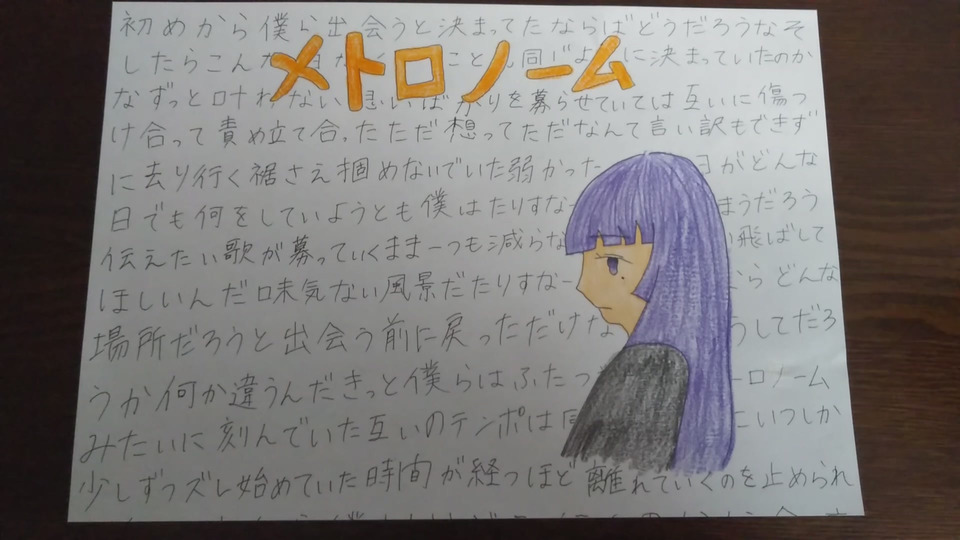 メトロノーム
初めから僕ら出会うと決まってたならばどうだろうなそ
したらこんな こと 同じよ に決まっていたのか
なずっと叶わない思いばかりを募らせていては互いに傷つ
け合って責め立て合ったただ想ってただなんて言い訳もできず
に去り行く裾さえ掴めないでいた弱かった 日がどんな
日でも何をしていようとも僕はたりすな まうだろう
伝えたい歌が募っていくまま一つも減らな い飛ばして
ほしいんだ味気ない風景だたりすな らどんな
場所だろうと出会う前に戻っただけな うしてだろ
うか何か違うんだきっと僕らはふたつ ーロノーム
みたいに刻んでいた互いのテンポは同 にいつしか
少しずつズレ始めていた時間が経つほど離れていくのを止められ